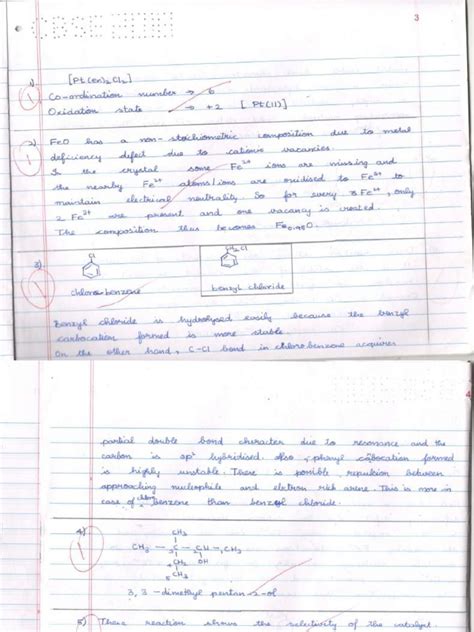 CBSE
3
1) [Pt(en)₂Cl₂]
1 Co-ordination number → 6
Oxidation state → +2 [Pt(II)]
2) FeO has a non-stoichiometric composition due to metal
1 deficiency defect due to cationic vacancies.
In the crystal some Fe²⁺ ions are missing and
the nearby Fe²⁺ atoms/ions are oxidised to Fe³⁺ to
maintain electrical neutrality. So for every 3 Fe²⁺, only
2 Fe³⁺ are present and one vacancy is created.
The composition thus becomes Fe₀.₉₅O.
3) Cl CH₂Cl
1 chlorobenzene benzyl chloride
Benzyl chloride is hydrolysed easily because the benzyl
carbocation formed is more stable
On the other hand, C-Cl bond in chlorobenzene acquires
4
partial double bond character due to resonance and the
carbon is sp² hybridised. Also, phenyl carbocation formed
is highly unstable. There is possible repulsion between
approaching nucleophile and electron rich arene. This is more in
case of chlorobenzene than benzyl chloride.
4) CH₃
1 CH₃ — ₃C — CH — CH₃
₄CH₂ OH
₅CH₃
3, 3 - dimethyl pentan-2-ol
5) These reaction shows the selectivity of the catalyst.